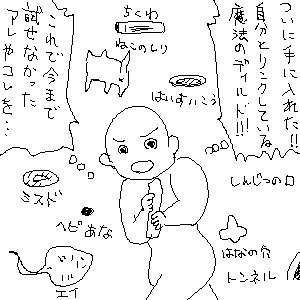 ついに手に入れた!!
自分とリンクしている
魔法のディルド!!!
これで今まで
試せなかった
アレやコレを…
ちくわ
ねこのしり
はいすいこう
しんじつの口
ミスド
ヘビあな
エイ
はなの穴
トンネル